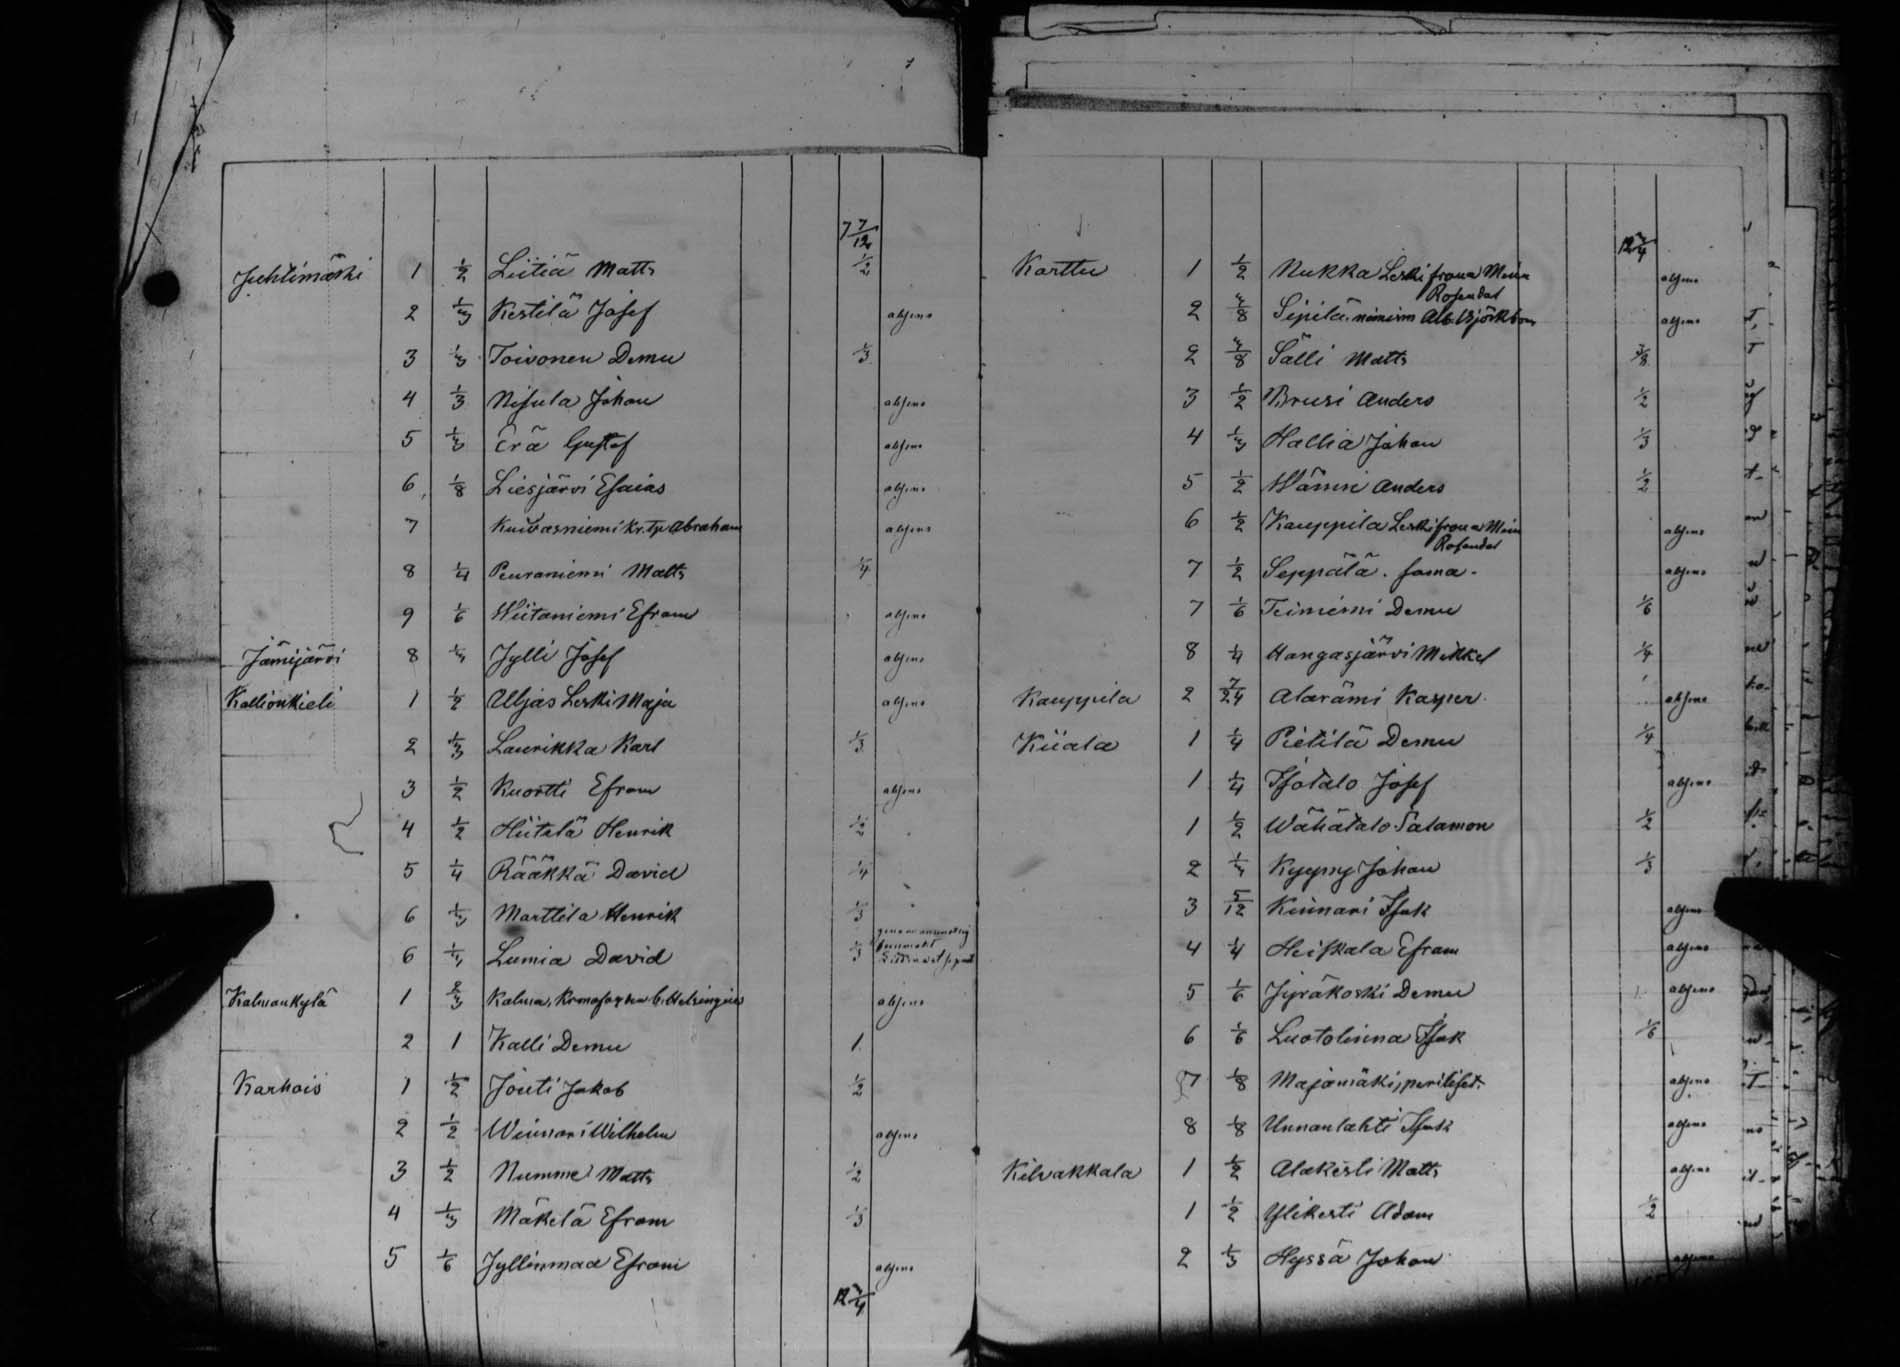 7 7/12
Juhtimäki 1 1/2 Liitiä Matts 1/2
2 1/3 Kestilä Josef absens
3 1/3 Toivonen Demu 1/3
4 1/3 Nisula Johan absens
5 1/3 Erä Gustaf absens
6 1/8 Liesjärvi Esaias absens
7 Kuivasniemi Kr. Tp Abraham absens
8 1/4 Peuraniemi Matts 1/4
9 1/6 Wiitaniemi Efram absens
Jämijärvi 8 1/3 Jylli Josef absens
Kallionkieli 1 1/2 Alljas Leski Maja absens
2 1/3 Laurikka Karl 1/3
3 1/2 Kuortti Efram absens
4 1/2 Hiitelä Henrik 1/2
5 1/4 Rääkkä David 1/4
6 1/3 Marttila Henrik 1/3
6 1/3 Lumia David 1/3
Kalmankylä 1 2/3 Kalma, absens
2 1 Kalli Demu 1
Karhois 1 1/2 Jouti Jakob 1/2
2 1/2 Wiinari Wilhelm absens
3 1/2 Numme Matts 1/2
4 1/3 Mäkelä Efram 1/3
5 1/6 Jyllinmaa Efram absens
12 3/4
12 3/4
Karttu 1 1/2 Nukka Leski frouva Maria absens
Rosendal
2 3/8 Sipilä. nimism Alb. Björkbom absens
2 3/8 Sälli Matts 3/8
3 1/2 Brusi Anders 1/2
4 1/3 Hallia Johan 1/3
5 1/2 Wänni Anders 1/2
6 1/2 Kauppila Leski frouva Maria absens
Rosendal
7 1/2 Seppälä. sama. absens
7 1/6 Teiniemi Demu 1/6
8 1/4 Hangasjärvi Mikkel 1/4
Kauppila 2 7/24 Alarämi Kasper absens
Kiiala 1 1/4 Pietilä Demu 1/4
1 1/4 Isotalo Josef absens
1 1/2 Wähätalo Salamon 1/2
2 1/3 Kyyny Johan 1/3
3 5/12 Kiinari Isak absens
4 1/4 Heiskala Efram absens
5 1/6 Jyräkoski Demu absens
6 1/6 Luotolinna Isak 1/6
7 1/8 Majamäki, perilliset. absens
8 1/8 Unnanlahti Isak absens
Kilvakkala 1 1/2 Alakesti Matts absens
1 1/2 Ylikesti Adam 1/2
2 1/3 Hyssä Johan absens